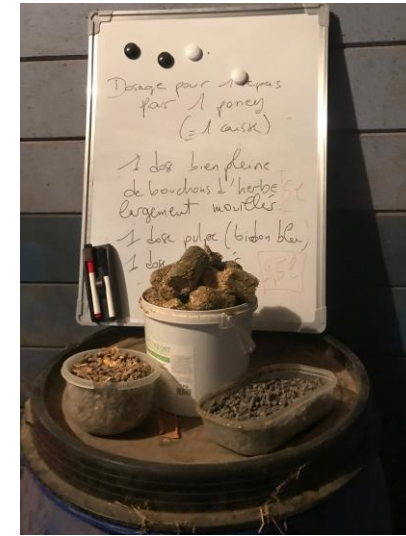 Dosage pour 1 repas
pour 1 poney
(= 1 caisse)
1 dose bien pleine
de bouchons d'herbe
largement mouillés
1 dose pulpe (bidon bleu)
1 dose